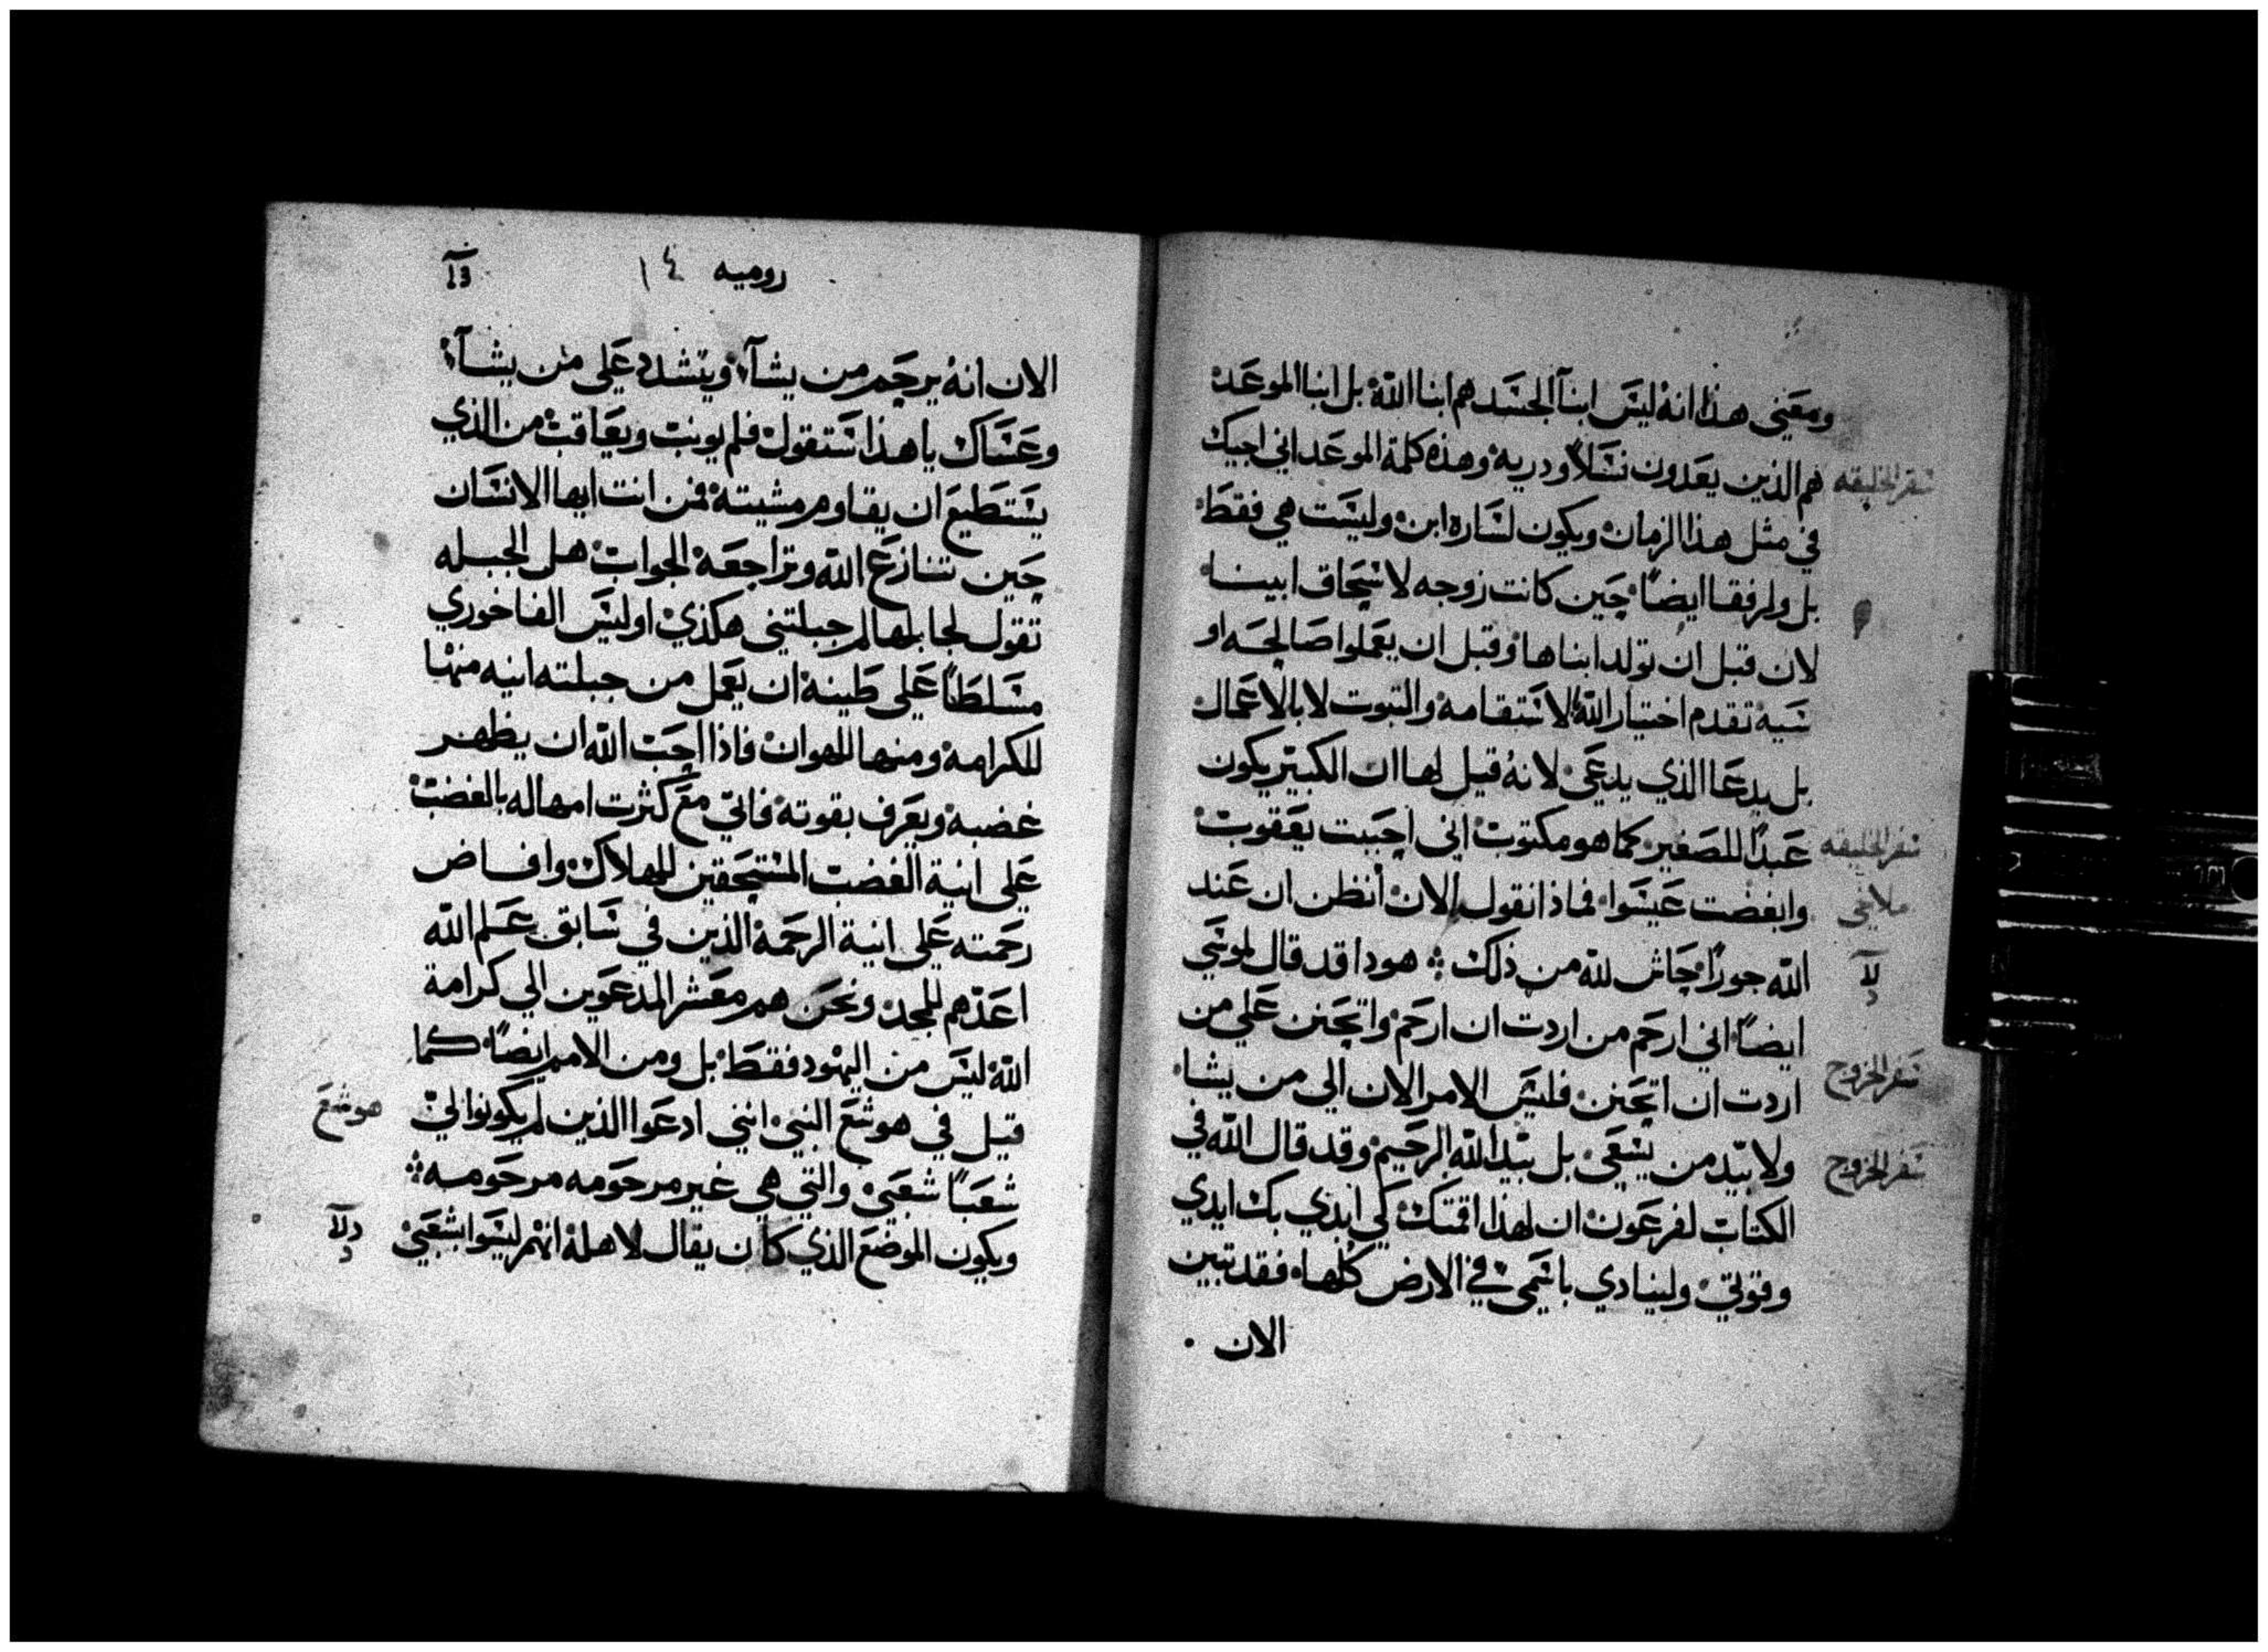 ومعني هذا انه ليس ابنآ الجسد هم ابنا الله بل ابنا الموعد
هم الذين يعدون نسلاً ودرية وهذه كلمة الموعد اني اجيك
سفر الخليقه
في مثل هذا الزمان ويكون لساره ابن وليست هي فقط
بل ولرفقا ايضاً حين كانت زوجه لاسحاق ابينا
لان قبل ان تولد ابناها وقبل ان يعملوا صالحه او
سيه تقدم اختيار الله لاستقامه والتبوت لا بالاعمال
بل بدعا الذي يدعى لانه قيل لها ان الكبير يكون
عبداً للصغير كما هو مكتوب اني احببت يعقوب
سفر الخليقه
وابغضت عيسوا فماذا نقول الان أنظن ان عند
ملاخي
الله جوراً حاش لله من ذلك ؛ هوذا قد قال لموسي
ايضاً اني ارحم من اردت ان ارحم واتحنن علي من
اردت ان اتحنن فليس الامر الان الي من يشا
سفر الخروج
ولا بيد من يسعى بل بيد الله الرحيم وقد قال الله في
سفر الخروج
الكتاب لفرعون ان لهذا اقمتك كي ابدي بك ايدي
وقوتي ولينادي باسمي في الارض كلها فقد تبين
الان
روميه ١٤
الان انه يرحم من يشآء ويتشدد على من يشآء
وعساك يا هذا ستقول فلم يونب ويعاقب من الذي
يستطيع ان يقاوم مشيته فمن انت ايها الانسان
حين تنازع الله وتراجعه الجواب هل الجبله
تقول لجابلها لم جبلتني هكذي اوليس الفاخوري
مسلطاً على طينه ان يعمل من جبلته انيه منها
للكرامه ومنها للهوان فاذا احب الله ان يظهر
غضبه ويعرف بقوته فاتي مع كثرت امهاله بالغضب
على انية الغضب المستحقين للهلاك وافاض
رحمته على انية الرحمة الذين في سابق علم الله
اعدهم للمجد ونحن هم معشر المدعوين الي كرامة
الله ليس من اليهود فقط بل ومن الامم ايضاً كما
قيل في هوشع النبي انني ادعوا الذين لم يكونوا لي
هوشع
شعباً شعبي والتي هي غير مرحومه مرحومه
ويكون الموضع الذي كان يقال لاهله انهم ليسوا بشعبي